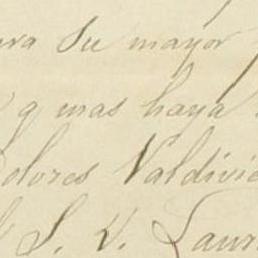 ara Su mayor
q mas haya
Dolores Valdivie
S. V. Laur